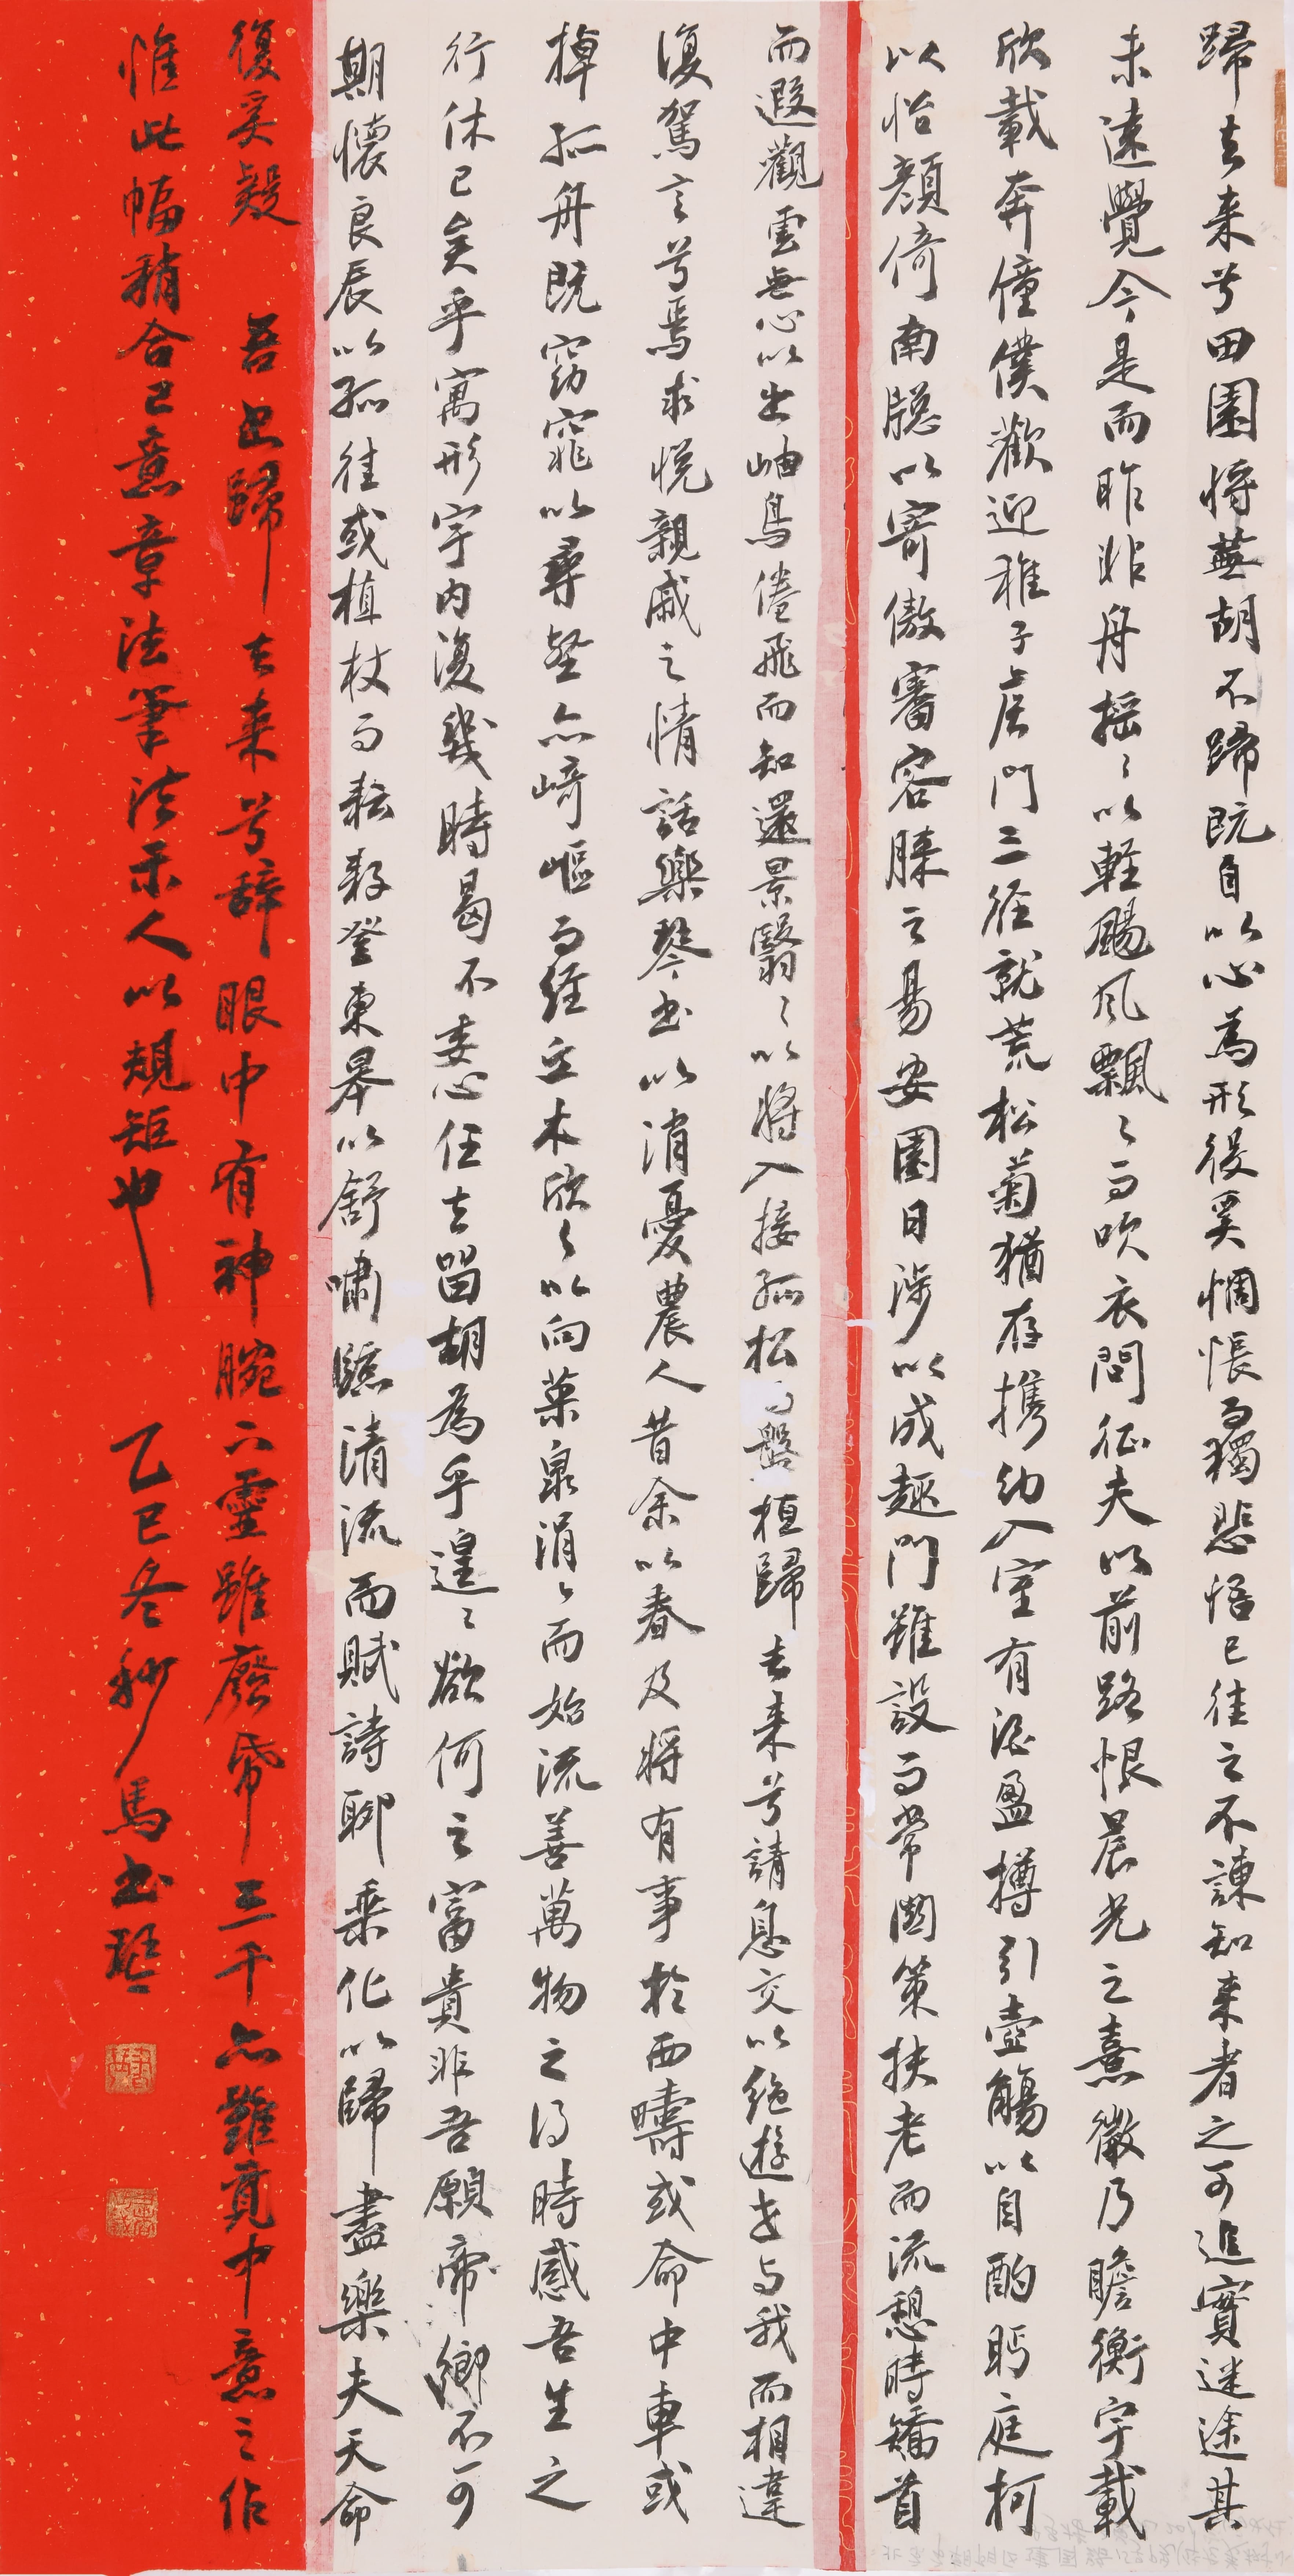 歸去来兮田園将蕪胡不歸既自以心為形役奚惆悵而獨悲悟已往之不諫知来者之可追實迷途其
未遠覺今是而昨非舟摇〻以輕颺風飄〻而吹衣問征夫以前路恨晨光之熹微乃瞻衡宇載
欣載奔僮僕歡迎稚子候門三径就荒松菊猶存攜幼入室有酒盈樽引壺觴以自酌眄庭柯
以怡顏倚南牕以寄傲審容膝之易安園日涉以成趣門雖設而常關策扶老而流憩時矯首
而遐觀雲無心以出岫鳥倦飛而知還景翳〻以将入接孤松而盤桓歸去来兮請息交以绝遊世与我而相違
復駕言兮焉求悦親戚之情話樂琴书以消憂農人昔余以春及将有事於西疇或命中車或
掉孤舟既窈窕以尋壑亦崎嶇而經丘木欣〻以向荣泉涓〻而始流善萬物之得時感吾生之
行休已矣乎寓形宇内復幾時曷不委心任去留胡為乎遑〻欲何之富貴非吾願帝鄉不可
期懷良辰以孤往或植杖而耘耔登東皋以舒嘯臨清流而賦詩聊乘化以歸盡樂夫天命
復奚疑 吾书歸去来兮辞眼中有神腕下靈雖廢帋三千亦難覓中意之作
惟此幅稍合己意章法筆法示人以規矩也 乙巳冬秒馬书琴